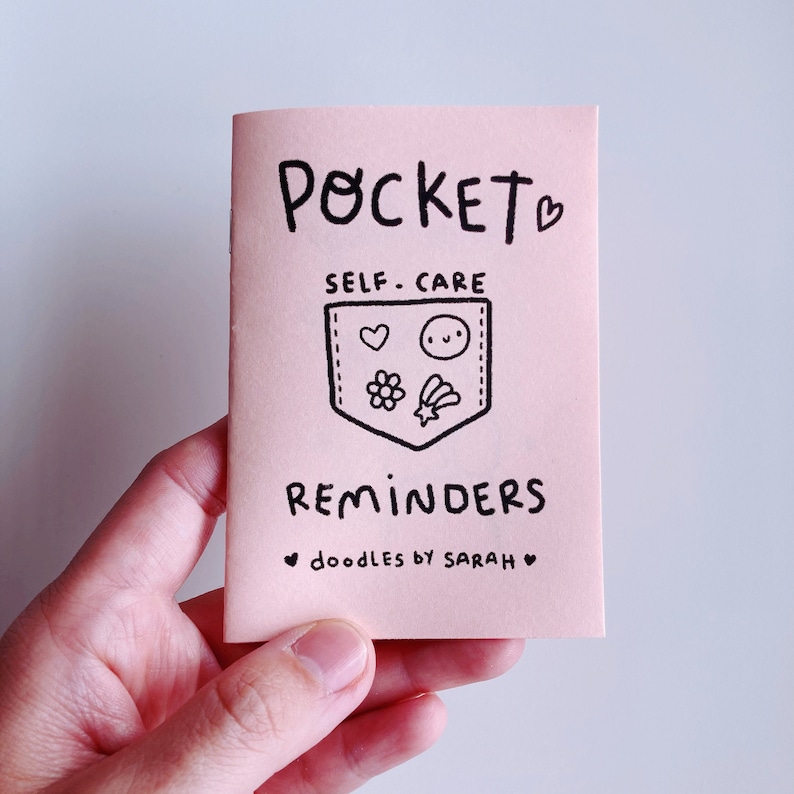 POCKET
SELF-CARE
REMINDERS
doodLES by SARAH